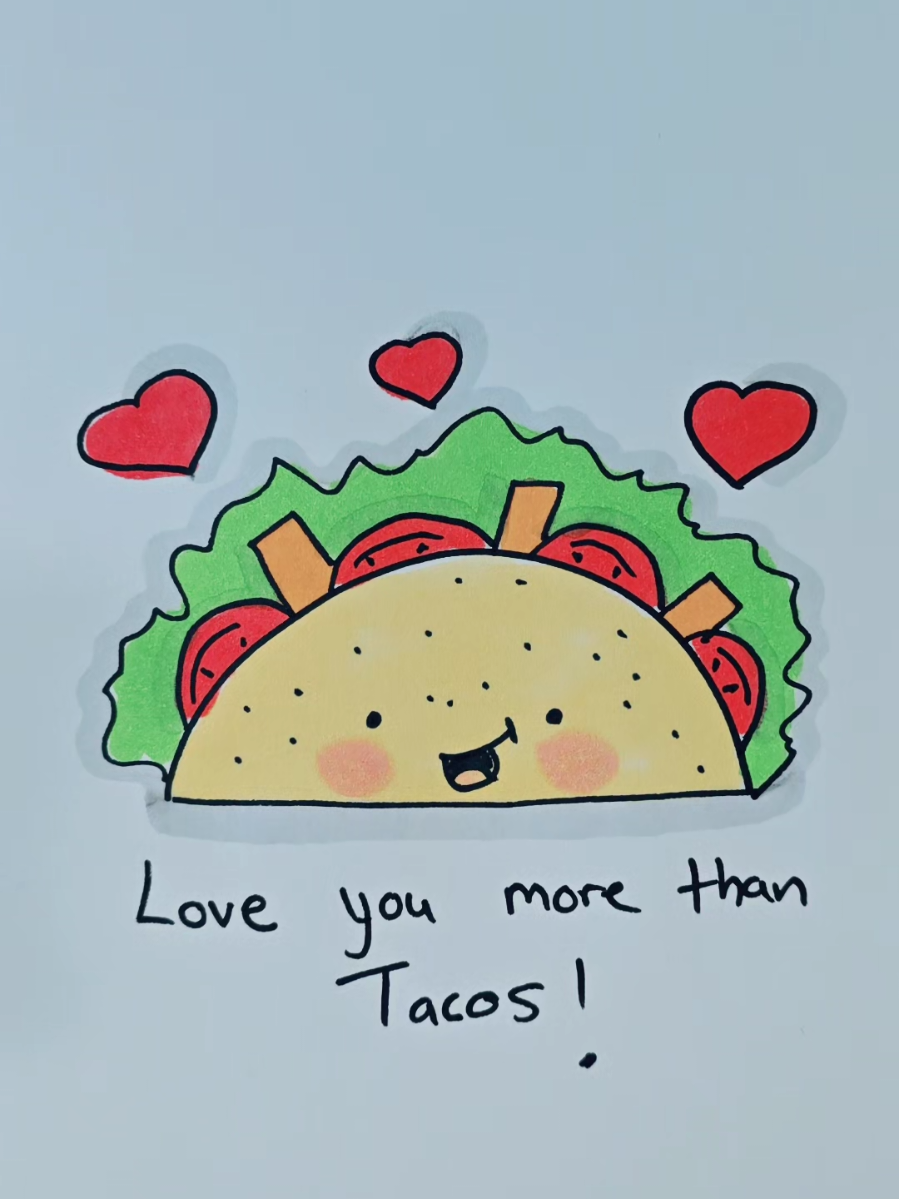 Love you more than
Tacos!